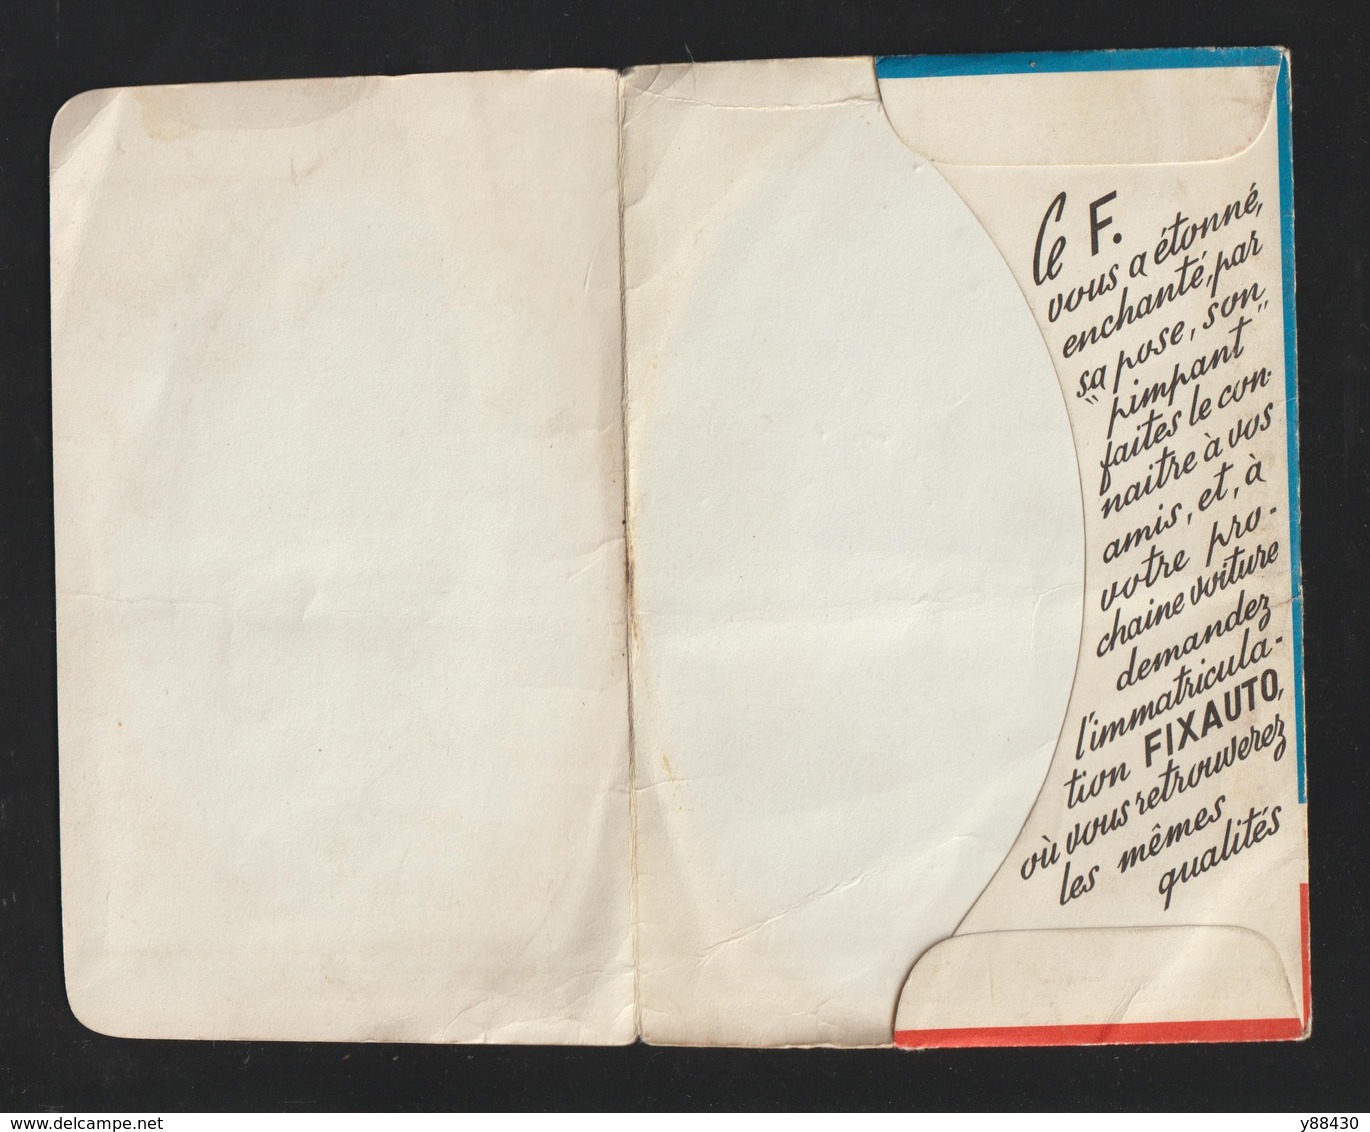 Ce F.
vous a étonné,
enchanté, par
sa pose, son
"pimpant"
faites le con-
naitre à vos
amis, et, à
votre pro-
chaine voiture
demandez
l'immatricula-
tion FIXAUTO,
où vous retrouverez
les mêmes
qualités
www.delcampe.net
y88430